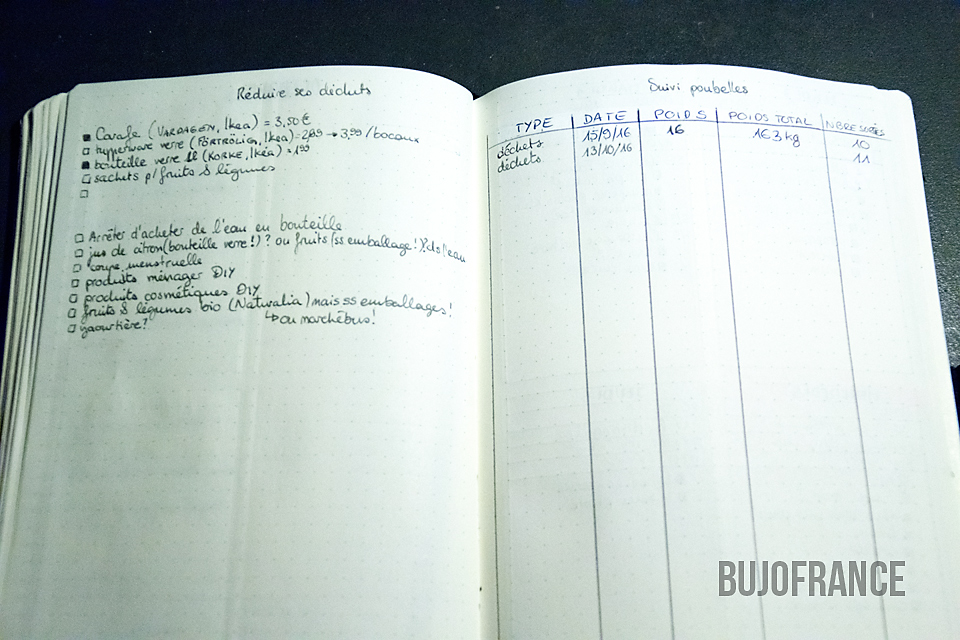 Réduire ses déchets
Carafe (VARDAGEN, Ikea) = 3,50€
hyperware verre (FÖRTROLIG, Ikea) = 2,89 → 3,99 / bocaux
bouteille verre 1l (KORKE, Ikéa) 1,99
sachets p/ fruits & légumes
Arrêter d'acheter de l'eau en bouteille
jus de citron (bouteille verre!)? ou fruits (ss emballage!)? ds l'eau
coupe menstruelle
produits ménager DIY
produits cosmétiques DIY
fruits & légumes bio (Naturalia) mais ss emballages!
↳ ou marchébus!
yaourtière?
Suivi poubelles
TYPE DATE POIDS POIDS TOTAL NBRE SORTIES
déchets 15/9/16 16 163 kg 10
déchets 13/10/16 11
BUJOFRANCE